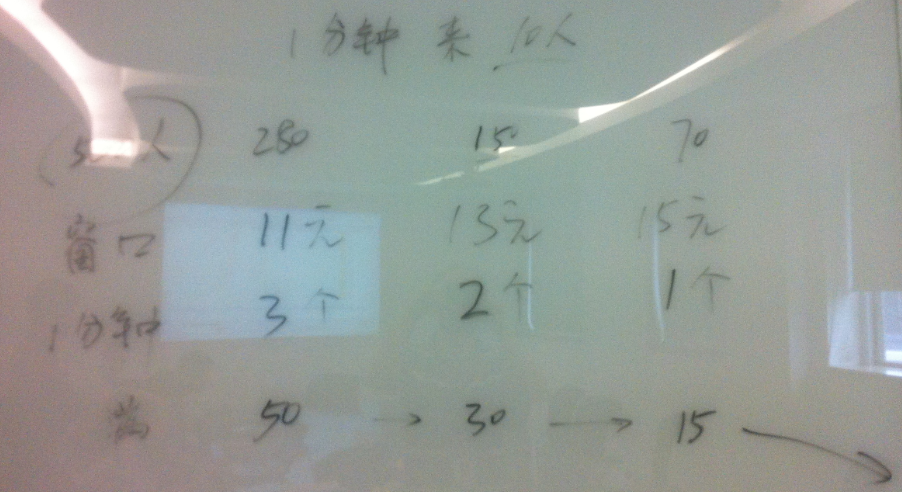 1分钟 来 10人
人 280 150 70
窗口 11元 13元 15元
1分钟 3个 2个 1个
50 → 30 → 15 →